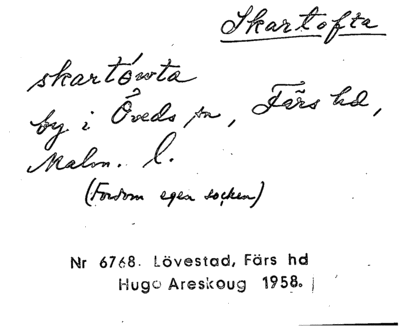 Skartofta
skartówta
by i Öveds sn, Färs hd,
Malm. l.
(Fordom egen socken)
Nr 6768. Lövestad, Färs hd
Hugo Areskoug 1958.